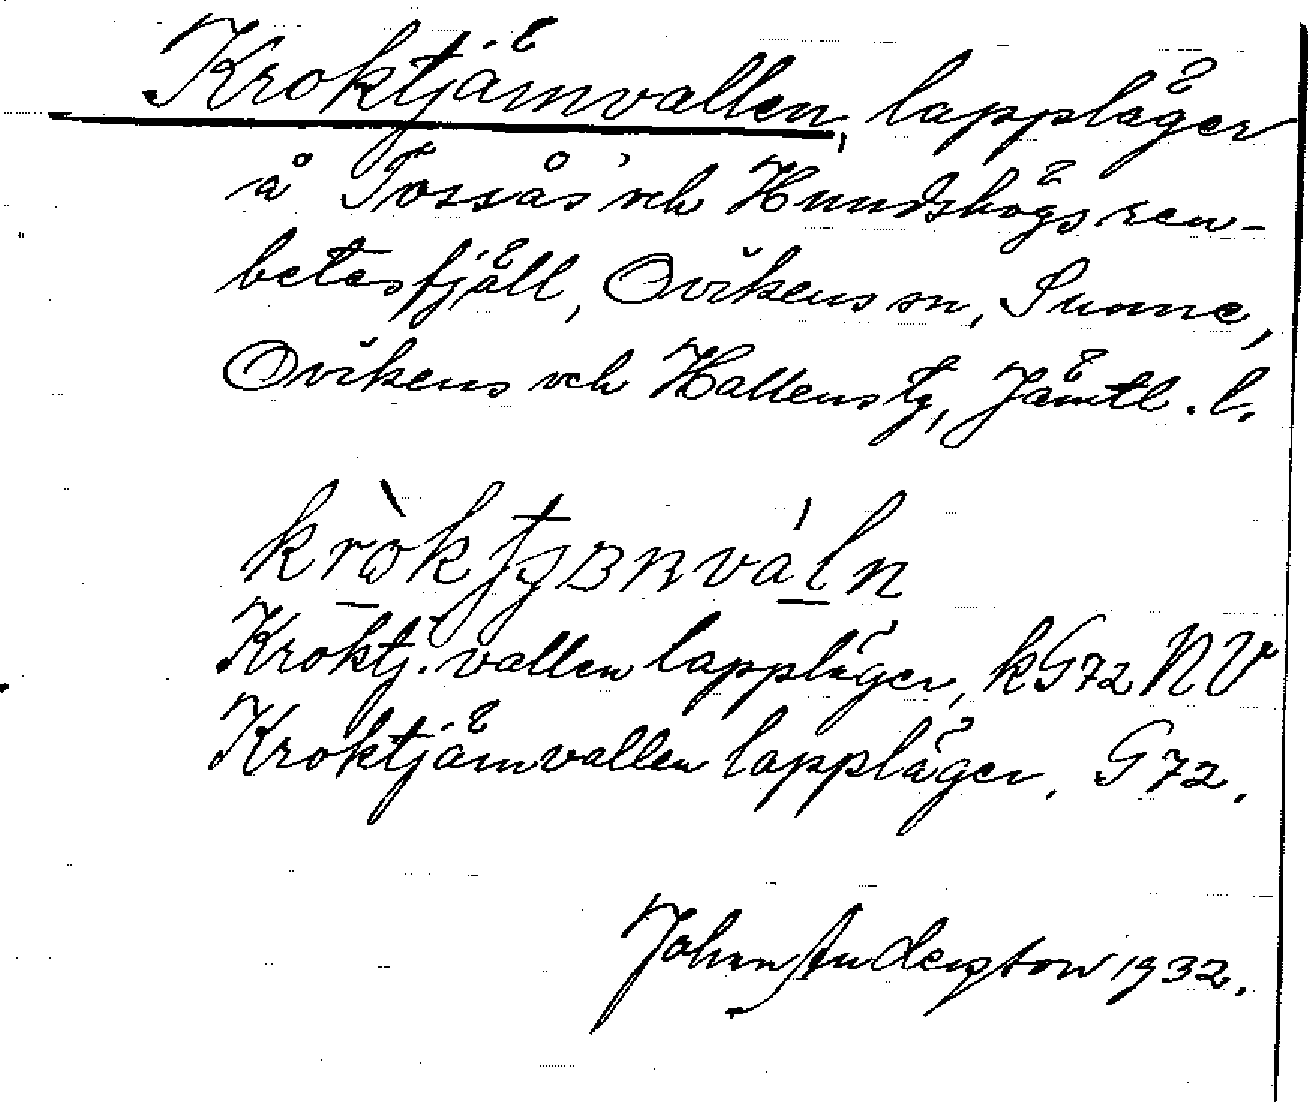 Kroktjärnvallen, lappläger
å Tossås och Hundshögs ren-
betesfjäll, Ovikens sn, Sunne,
Ovikens och Hallens tg, Jämtl. l.
Kroktj. vallen lappläger, kG72 NV
Kroktjärnvallen lappläger. G72.
John Anderston 1932.